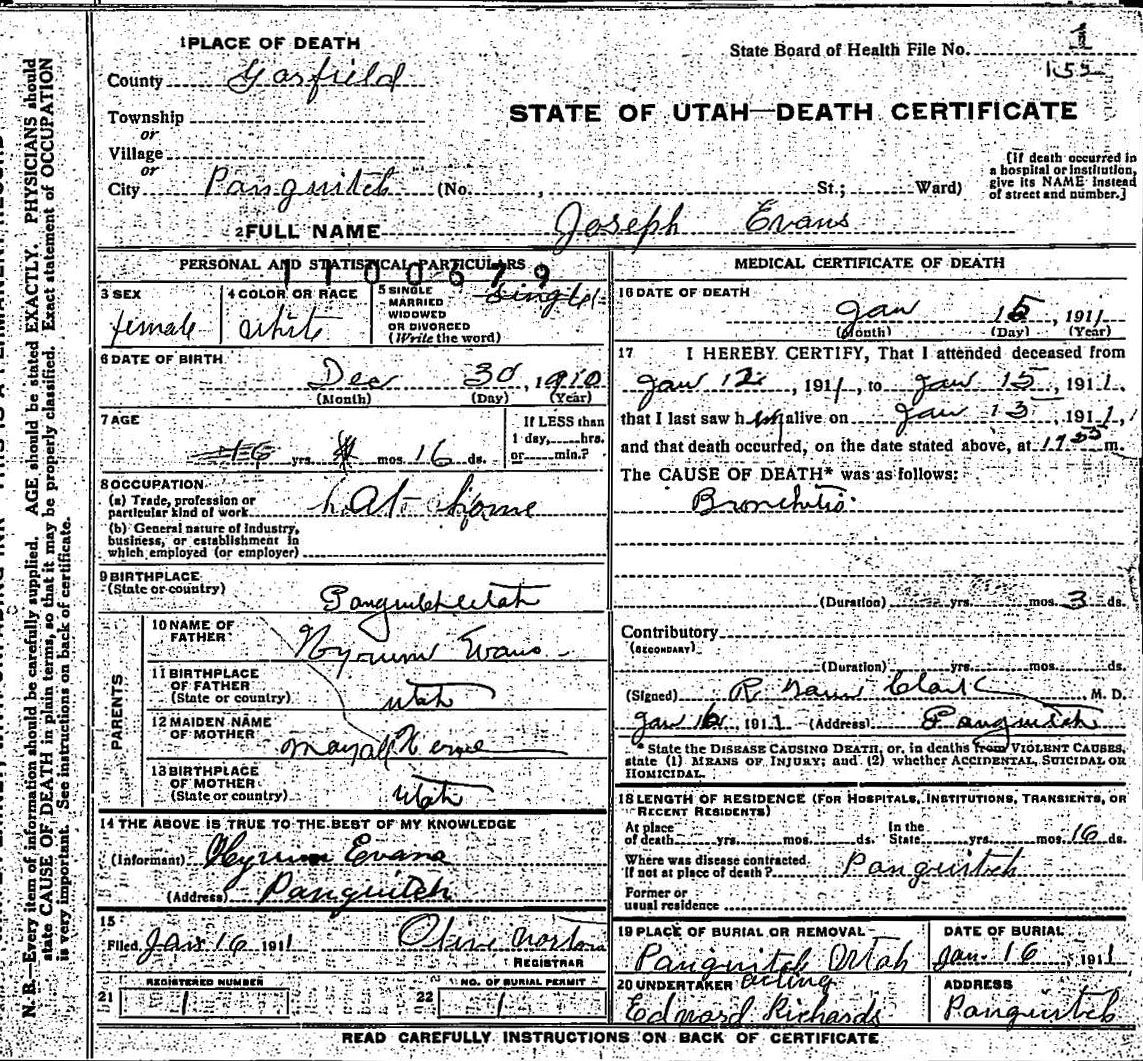 1 PLACE OF DEATH
County Garfield
Township
or
Village
or
City Panguitch (No. , St.; Ward)
State Board of Health File No. 1
152
STATE OF UTAH—DEATH CERTIFICATE
[If death occurred in
a hospital or institution,
give its NAME instead
of street and number.]
2 FULL NAME Joseph Evans
PERSONAL AND STATISTICAL PARTICULARS
1100679
3 SEX
female
4 COLOR OR RACE
white
5 SINGLE
MARRIED
WIDOWED
OR DIVORCED
(Write the word)
Single
6 DATE OF BIRTH
Dec 30, 1910
(Month) (Day) (Year)
7 AGE
yrs. mos. 16 ds.
If LESS than
1 day, hrs.
or min.?
8 OCCUPATION
(a) Trade, profession or
particular kind of work At Home
(b) General nature of industry,
business, or establishment in
which employed (or employer)
9 BIRTHPLACE
(State or country)
Panguitch Utah
PARENTS
10 NAME OF
FATHER
Hyrum Evans
11 BIRTHPLACE
OF FATHER
(State or country)
Utah
12 MAIDEN NAME
OF MOTHER
13 BIRTHPLACE
OF MOTHER
(State or country)
Utah
14 THE ABOVE IS TRUE TO THE BEST OF MY KNOWLEDGE
(Informant) Hyrum Evans
(Address) Panguitch
15
Filed Jan 16 1911 Olive Norton
REGISTRAR
21 REGISTERED NUMBER
1
22 NO. OF BURIAL PERMIT
1
MEDICAL CERTIFICATE OF DEATH
16 DATE OF DEATH
Jan 15, 1911
(Month) (Day) (Year)
17 I HEREBY CERTIFY, That I attended deceased from
Jan 12, 1911, to Jan 15, 1911,
that I last saw him alive on Jan 15, 1911,
and that death occurred, on the date stated above, at m.
The CAUSE OF DEATH* was as follows:
Bronchitis
(Duration) yrs. mos. 3 ds.
Contributory
(SECONDARY)
(Duration) yrs. mos. ds.
(Signed) R Clark M. D.
Jan 16, 1911 (Address) Panguitch
* State the DISEASE CAUSING DEATH, or, in deaths from VIOLENT CAUSES,
state (1) MEANS OF INJURY; and (2) whether ACCIDENTAL, SUICIDAL OR
HOMICIDAL.
18 LENGTH OF RESIDENCE (FOR HOSPITALS, INSTITUTIONS, TRANSIENTS, OR
RECENT RESIDENTS)
At place
of death yrs. mos. ds.
In the
State yrs. mos. 16 ds.
Where was disease contracted,
If not at place of death? Panguitch
Former or
usual residence
19 PLACE OF BURIAL OR REMOVAL
Panguitch Utah
DATE OF BURIAL
Jan. 16, 1911
20 UNDERTAKER acting
Edward Richards
ADDRESS
Panguitch
READ CAREFULLY INSTRUCTIONS ON BACK OF CERTIFICATE
N. B.—Every item of information should be carefully supplied. AGE should be stated EXACTLY. PHYSICIANS should
state CAUSE OF DEATH in plain terms, so that it may be properly classified. Exact statement of OCCUPATION
is very important. See instructions on back of certificate.